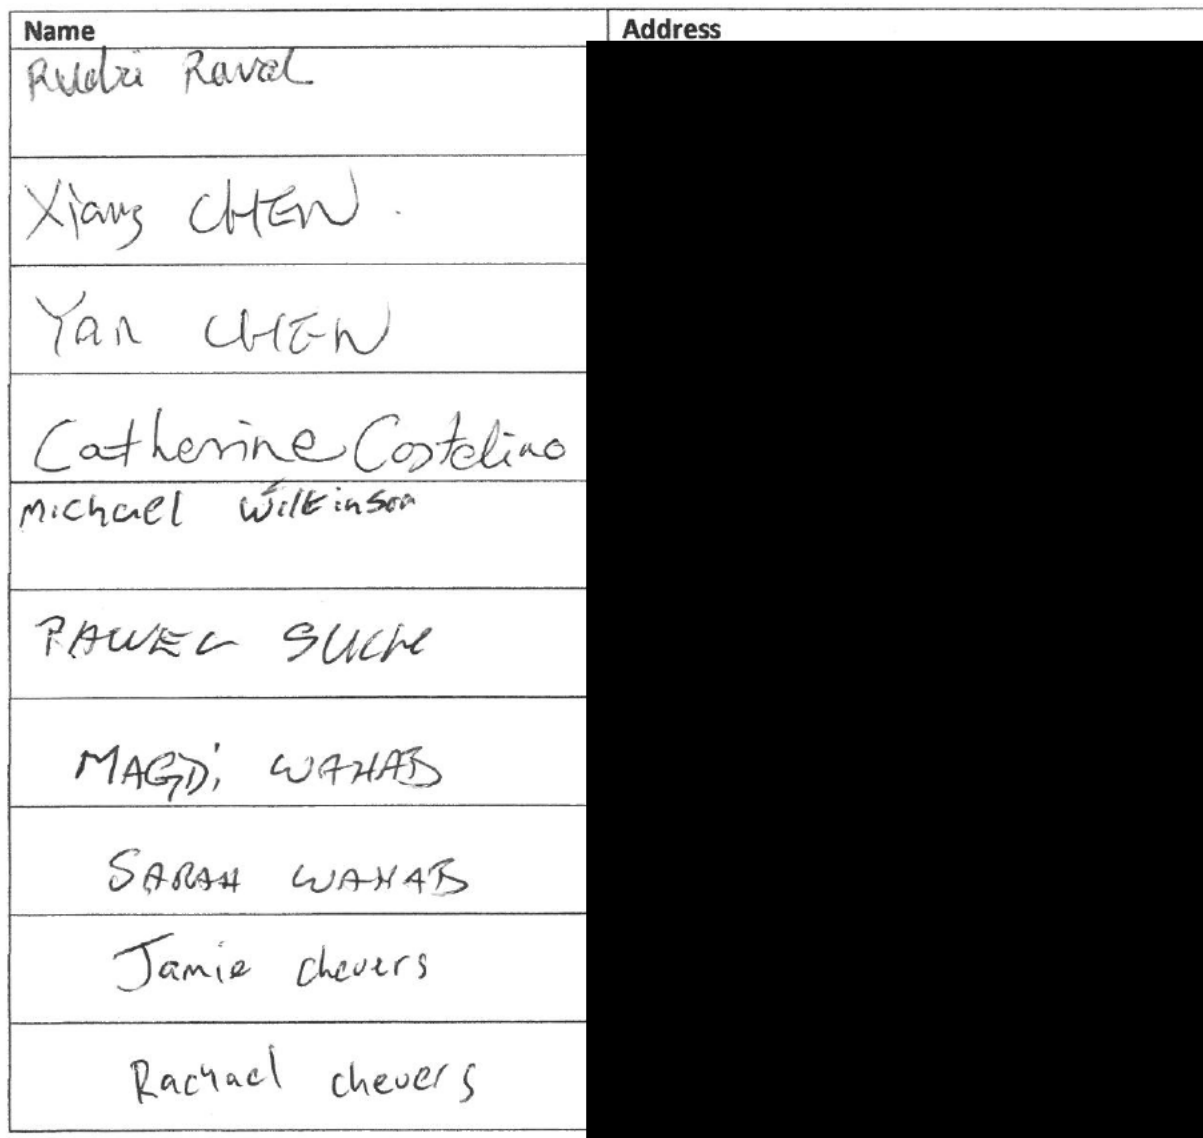 Name Address
Rudri Raval
Xiang CHEN
Yan CHEN
Catherine Costelino
Michael Wilkinson
PAWEL SUCH
MAGDi WAHAB
SARAH WAHAB
Jamie chevers
Rachael chevers